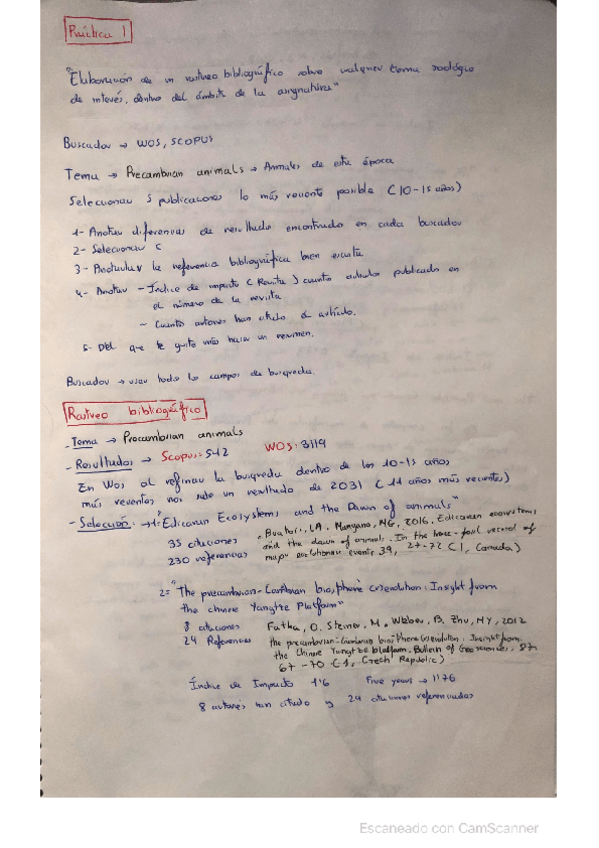 Práctica 1
"Elaboración de un rastreo bibliográfico sobre cualquier tema zoológico
de interés, dentro del ámbito de la asignatura"
Buscador → WOS, SCOPUS
Tema → Precambrian animals → Animales de esta época
Seleccionar 5 publicaciones lo más reciente posible (10-15 años)
1- Anotar diferencias de resultado encontrado en cada buscador
2- Seleccionar
3- la referencia bibliográfica bien escrita
4- Anotar - Índice de impacto (Revista) cuanto publicado en
el número de la revista
- Cuantos autores han citado el artículo.
5- Del que te guste más hacer un resumen.
Buscador → usar todo los campos de busqueda.
Rastreo bibliográfico
- Tema → Precambrian animals
- Resultados → Scopus: 542 WOS: 3119
En Wos al refinar la busqueda dentro de los 10-15 años
más recientes nos sale un resultado de 2031 (11 años más recientes)
- Selección: → 1= "Edicaran Ecosystems and the Dawn of animals"
35 citaciones
230 referencias
Buatois, LA. Mangano, MG, 2016. Edicaran ecosystems
and the dawn of animals. In the trace-fosil record of
major evolutionari events 39, 27-72 (1, Canada)
2= "The precambrian-Cambrian biosphere (r)evolution: Insight from
the chinese Yangtze Platform"
8 citaciones
24 Referencias
O. Steiner, M. B. Zhu, MY, 2012
the precambrian-Cambrian biosphere (r)evolution: Insight from
the Chinese Yangtze Platform. Bulletin of Geosciences, 87
67-70 (1, Czech Republic)
Índice de Impacto 1'6 Five years → 1'76
8 autores han citado y 24 citaciones referenciadas
Escaneado con CamScanner